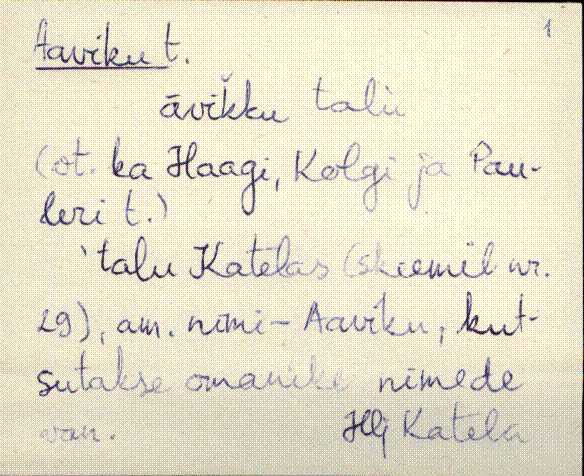 1
Aaviku t.
āvikku talu
(vt. ka Haagi, Kolgi ja Pau-
leri t.)
'talu Katelas (skeemil nr.
29), am. nimi - Aaviku, kut-
sutakse omanike nimede
van.
Hlj Katela